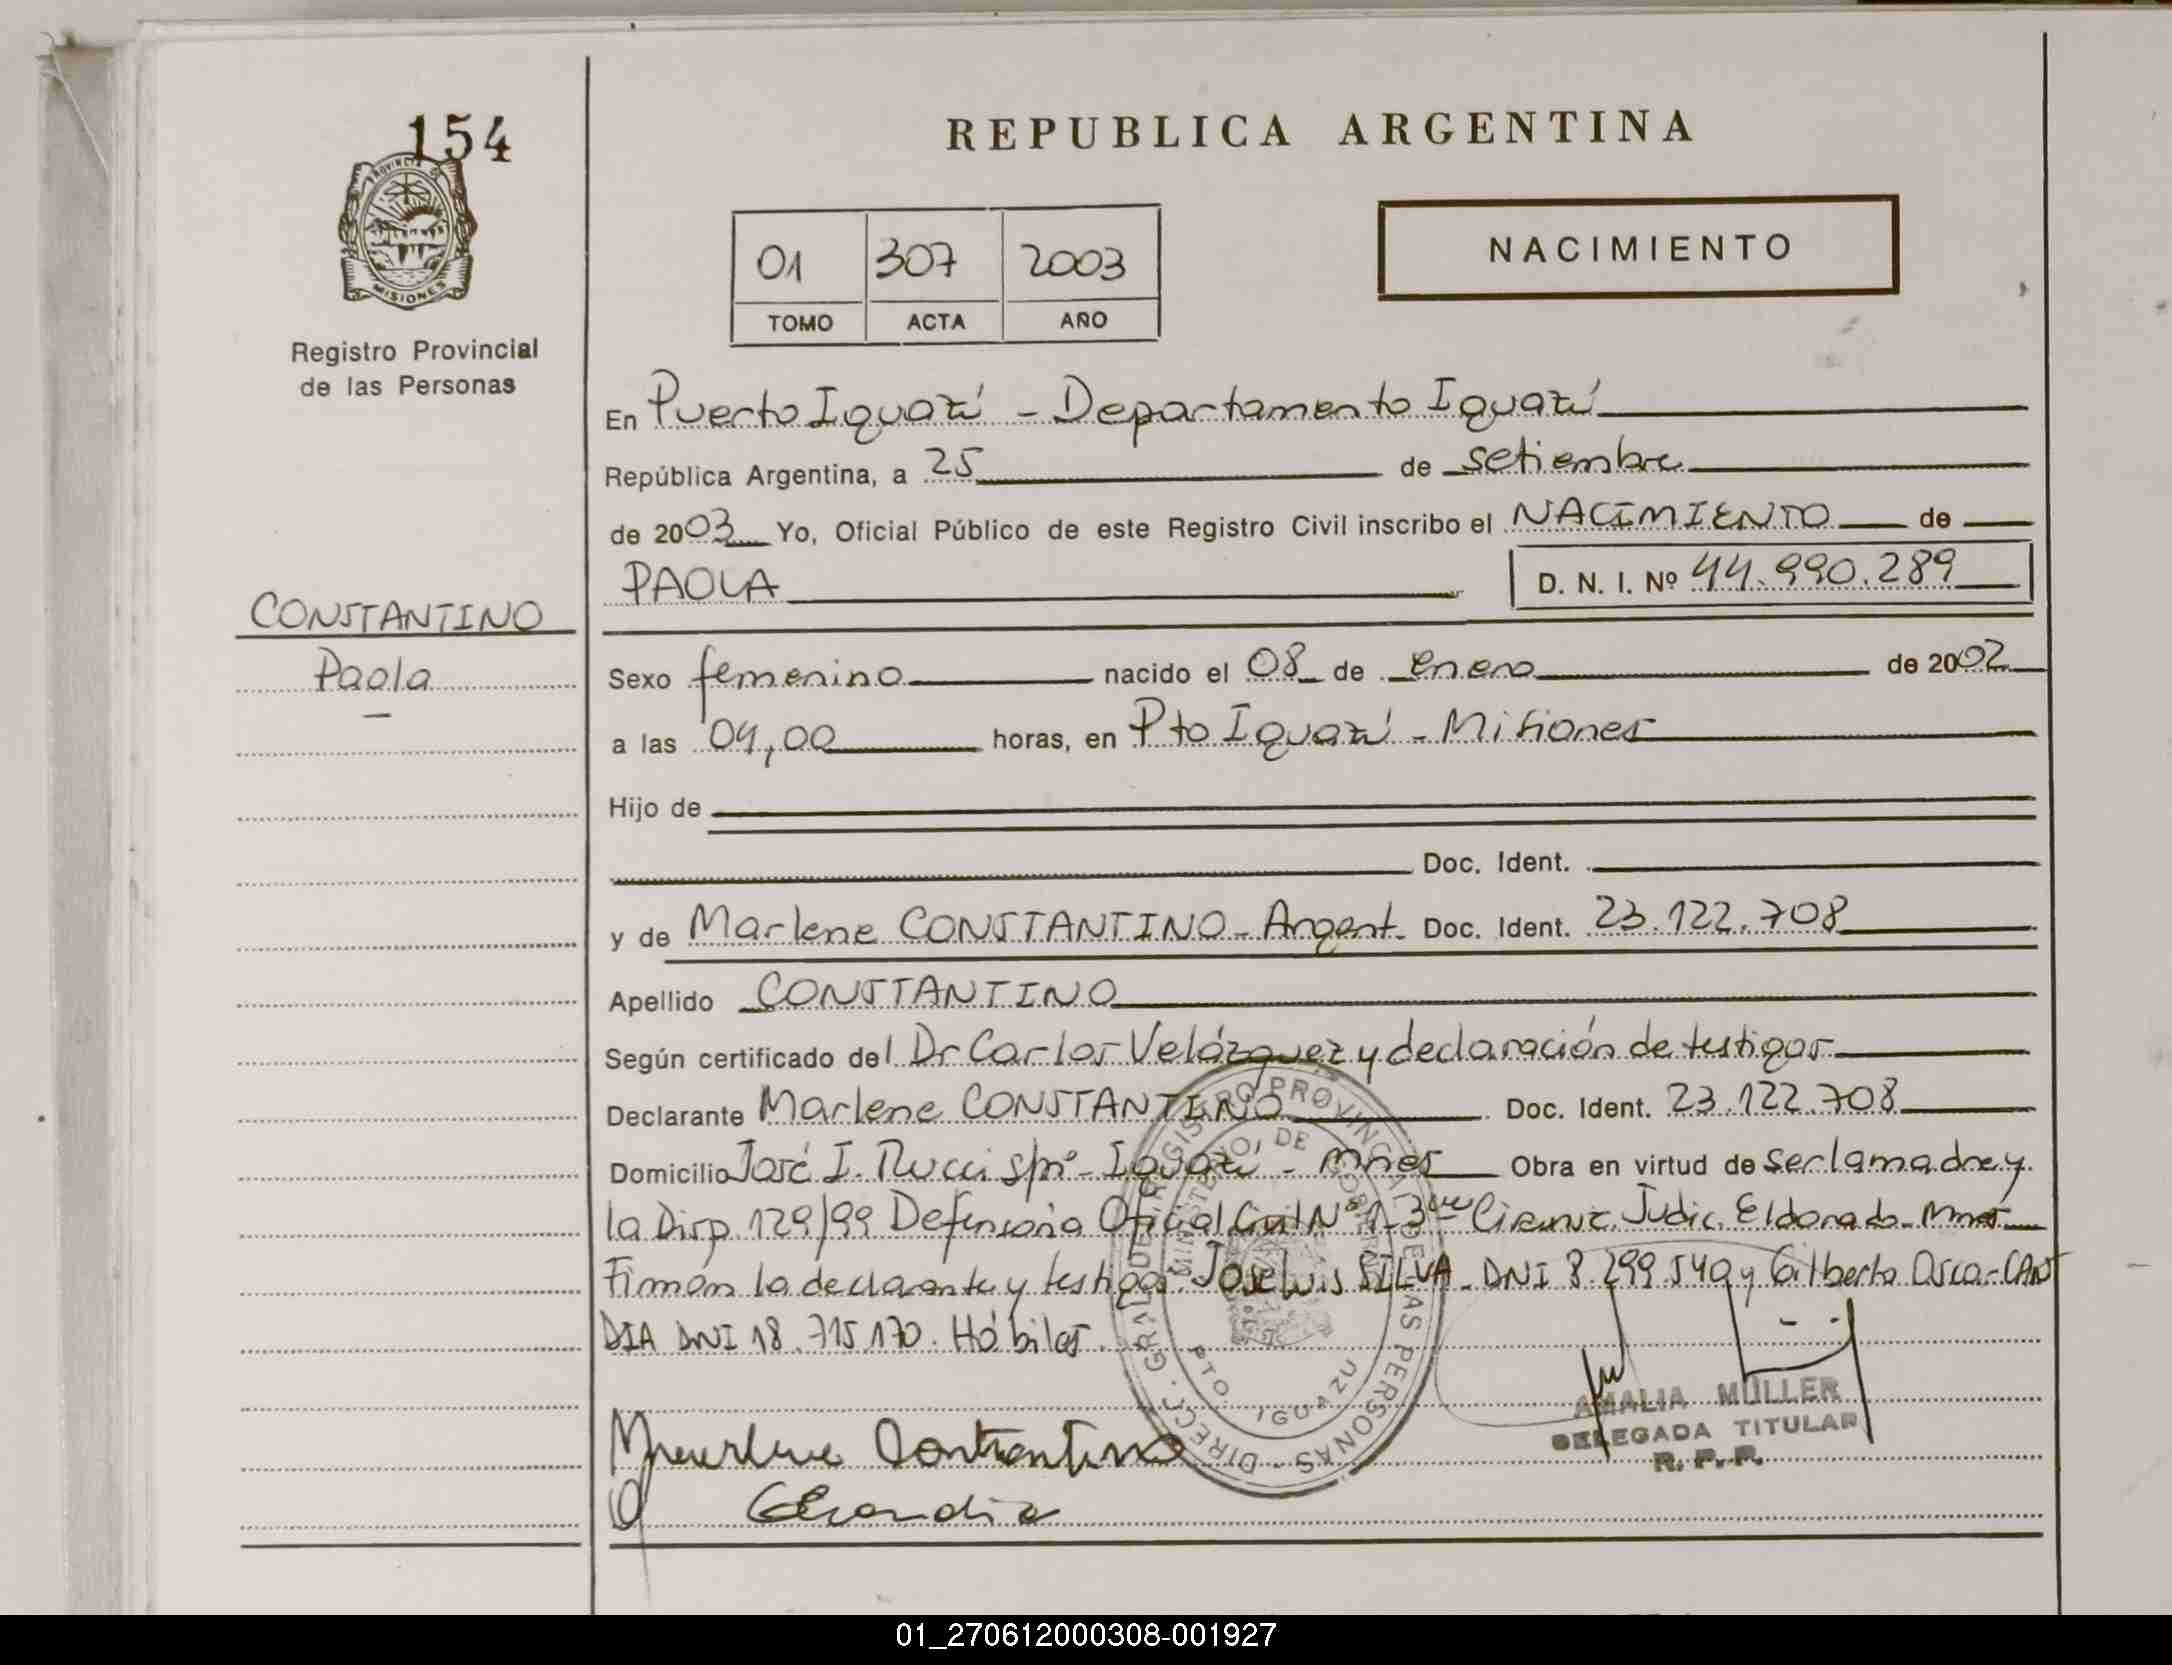 154
REPUBLICA ARGENTINA
PROVINCIA DE MISIONES
Registro Provincial
de las Personas
01 307 2003
TOMO ACTA AÑO
NACIMIENTO
En Puerto Iguazú - Departamento Iguazú
República Argentina, a 25 de setiembre
de 2003 Yo, Oficial Público de este Registro Civil inscribo el NACIMIENTO de
PAOLA D. N. I. Nº 44.990.289
CONSTANTINO
Paola
Sexo femenino nacido el 08 de enero de 2002
a las 04,00 horas, en Pto Iguazú - Misiones
Hijo de
Doc. Ident.
y de Marlene CONSTANTINO - Argent. Doc. Ident. 23.122.708
Apellido CONSTANTINO
Según certificado del Dr Carlos Velázquez y declaración de testigos
Declarante Marlene CONSTANTINO Doc. Ident. 23.122.708
Domicilio José I. Rucci s/nº - Iguazú - Mnes Obra en virtud de ser la madre y
la Disp. 129/99 Defensoria Oficial Civil Nº 1 - 3era Circunc. Judic. Eldorado - Mnes
Firman la declarante y testigos: Jose Luis SILVA - DNI 8.299.540 y Gilberto Oscar CAN
DIA DNI 18.715.170. Hábiles.
DIRECC. GRAL. DE REGISTRO PROVINCIAL DE LAS PERSONAS
MINISTERIO DE GOBIERNO
PTO. IGUAZU
AMALIA MÜLLER
DELEGADA TITULAR
R. P. P.
Marlene Constantino
01_270612000308-001927